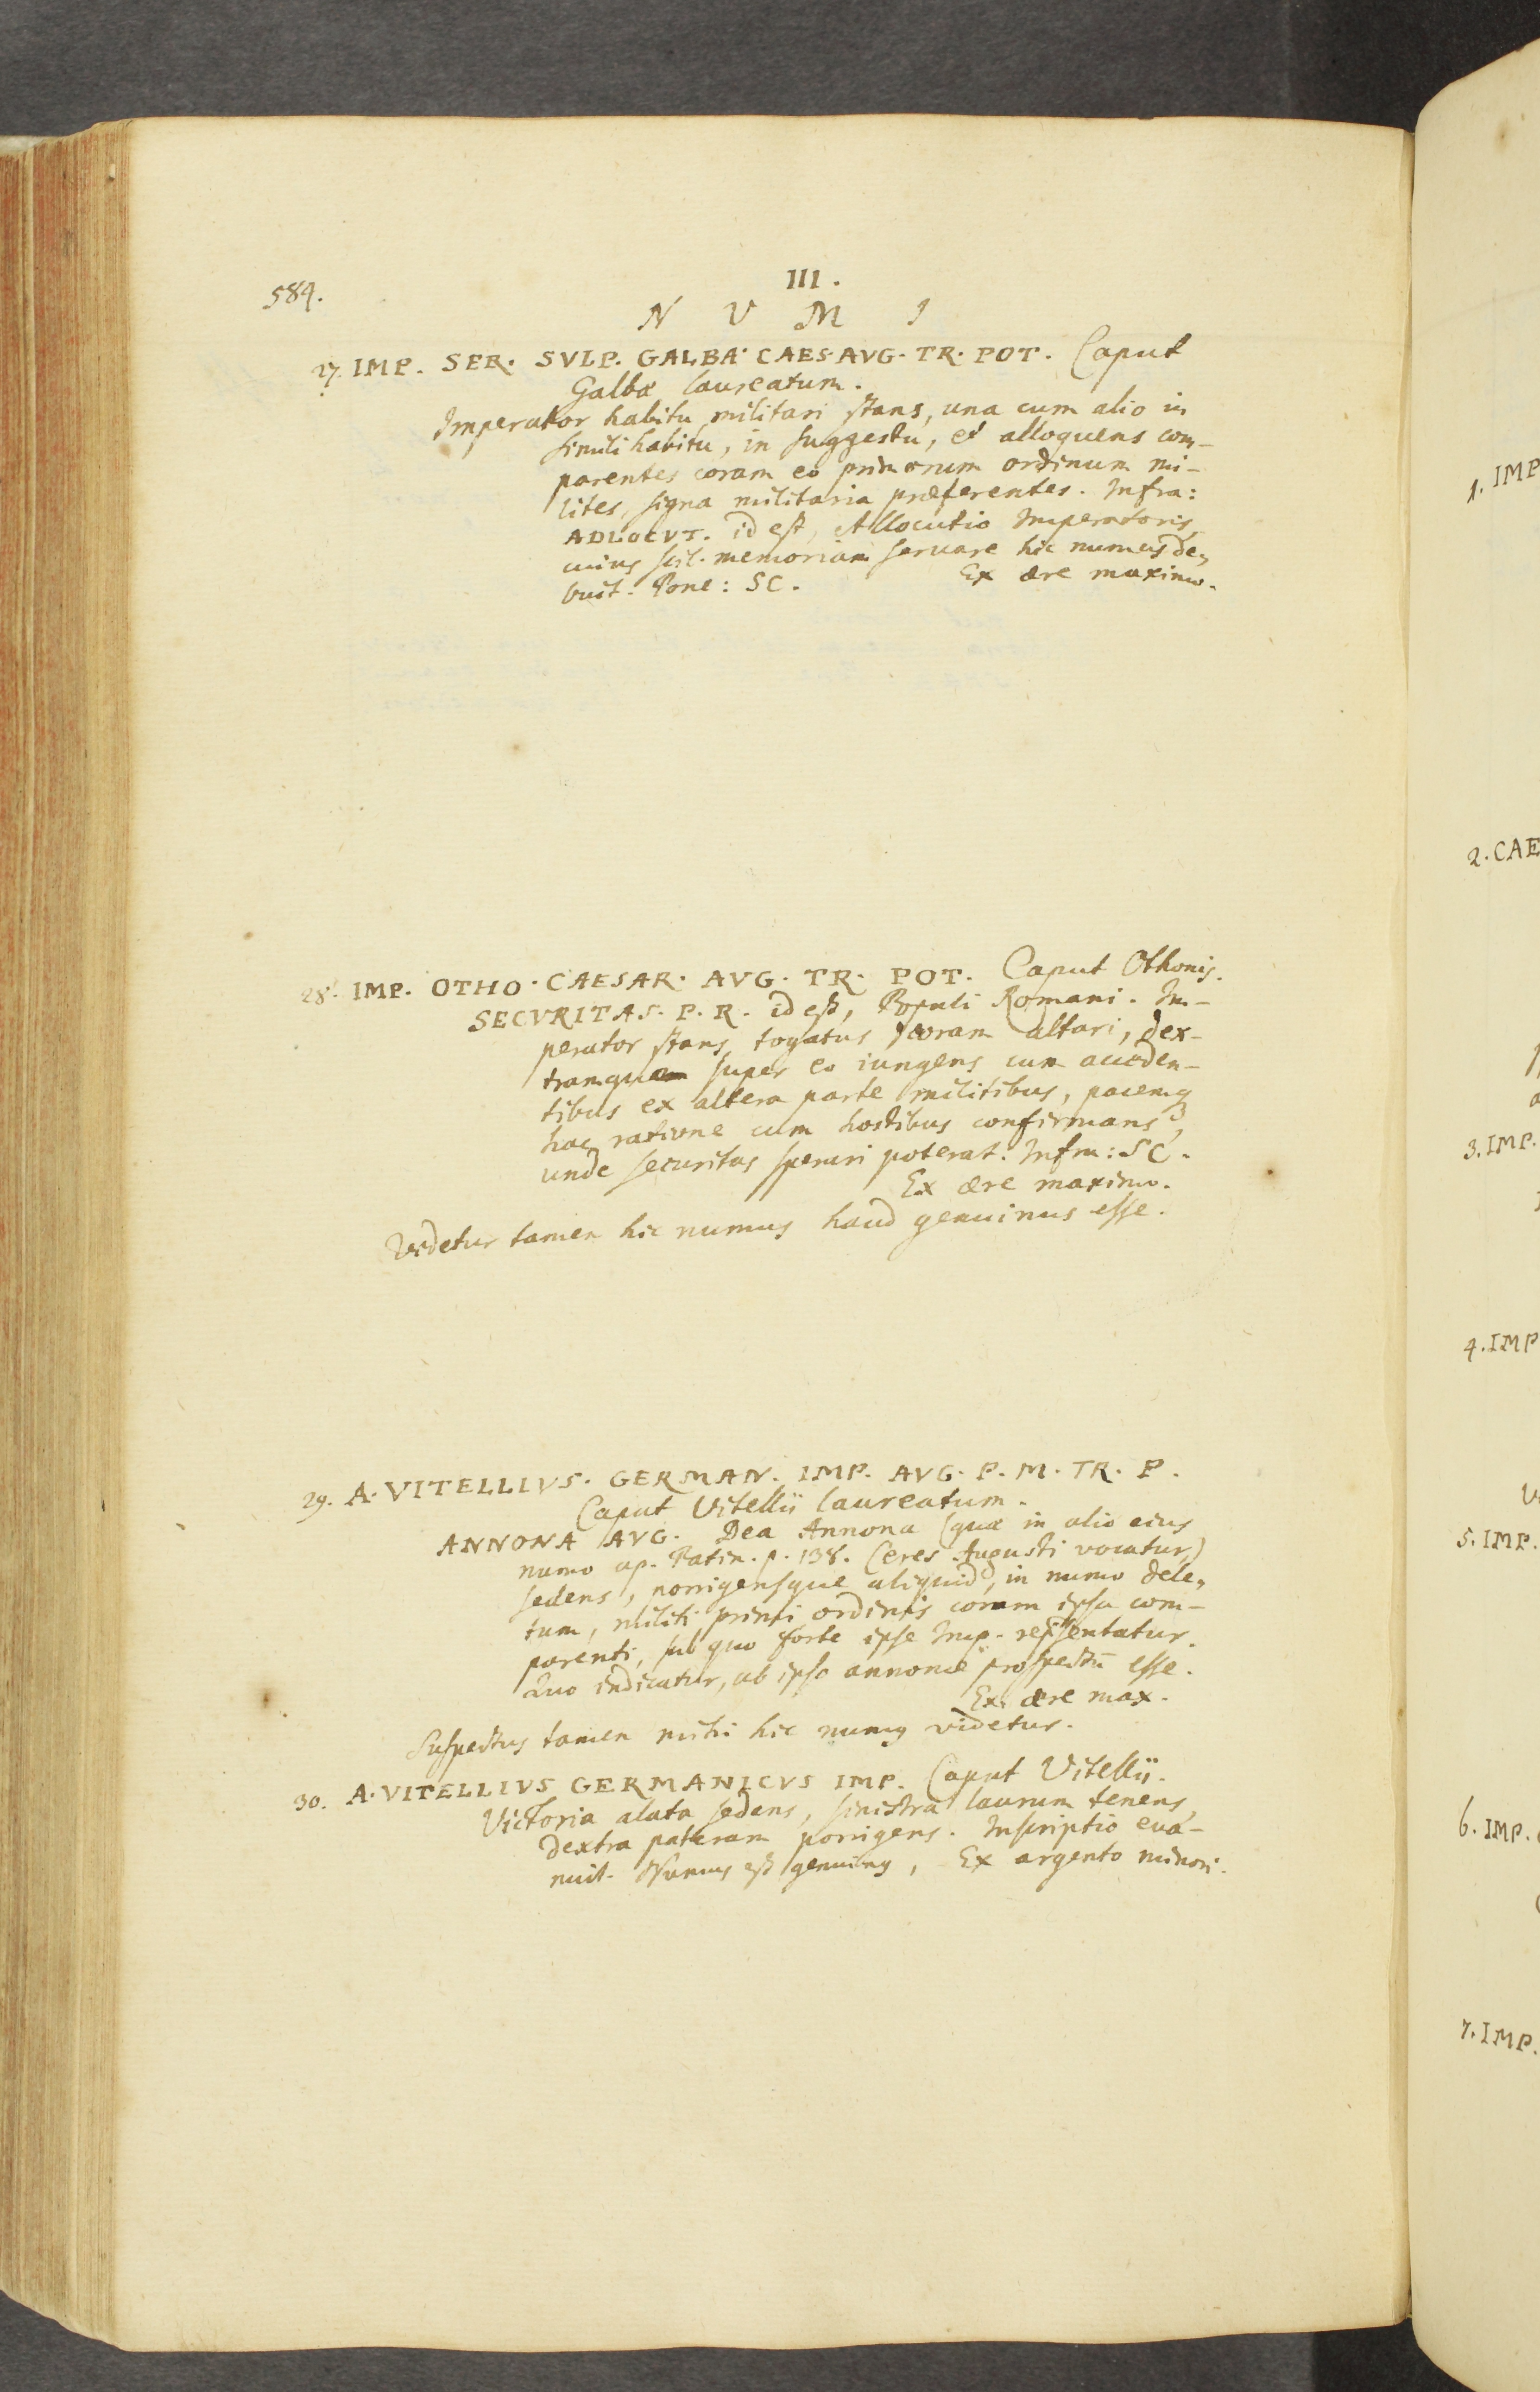 584.
III.
N U M I
27. IMP. SER. SVLP. GALBA. CAES. AVG. TR. POT. Caput
Galbæ laureatum.
Imperator habitu militari stans, una cum alio in
simili habitu, in suggestu, et alloquens com-
parentes coram eo primorum ordinum mi-
lites, signa militaria præferentes. Infra:
ADLOCVT. id est, Allocutio Imperatoris,
cuius scil. memoriam servare hic numus de-
buit. Pone: SC. Ex ære maximo.
28. IMP. OTHO. CAESAR. AVG. TR. POT. Caput Othonis.
SECVRITAS. P. R. id est, Populi Romani. Im-
perator stans, togatus coram altari, dex-
tramque super eo iungens cum acceden-
tibus ex altera parte militibus, pacemq
hac ratione cum hostibus confirmans,
unde securitas sperari poterat. Infra: SC.
Ex ære maximo.
Videtur tamen hic numus haud genuinus esse.
29. A. VITELLIVS. GERMAN. IMP. AVG. P. M. TR. P.
Caput Vitellii laureatum.
ANNONA AVG. Dea Annona (quæ in alio eius
numo ap. Patin. p. 138. Ceres Augusti vocatur)
sedens, porrigensque aliquid, in numo dele-
tum, militi primi ordinis coram ipsa com-
parenti, sub quo forte ipse Imp. repsentatur.
Quo indicatur, ab ipso annonæ prospectū esse.
Ex ære max.
Suspectus tamen mihi hic numq videtur.
30. A. VITELLIVS GERMANICVS IMP. Caput Vitellii.
Victoria alata sedens, sinistra laurum tenens,
dextra pateram porrigens. Inscriptio eva-
nuit. Numus est genuinq, Ex argento minori.
1. IMP
2. CAE
3. IMP.
4. IMP
5. IMP.
6. IMP.
7. IMP.